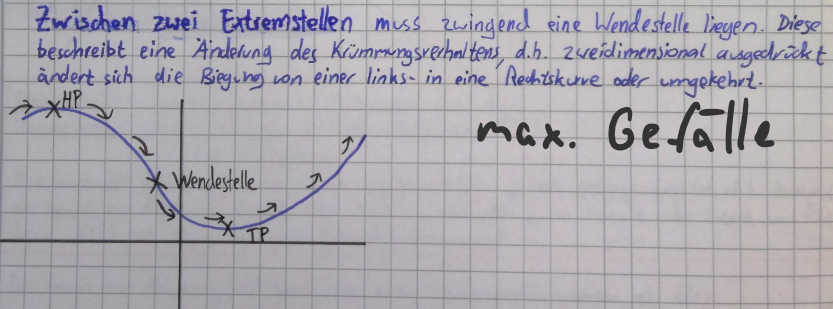 Zwischen zwei Extremstellen muss zwingend eine Wendestelle liegen. Diese
beschreibt eine Änderung des Krümmungsverhaltens, d.h. zweidimensional ausgedrückt
ändert sich die Biegung von einer links- in eine Rechtskurve oder umgekehrt.
HP
max. Gefälle
Wendestelle
TP